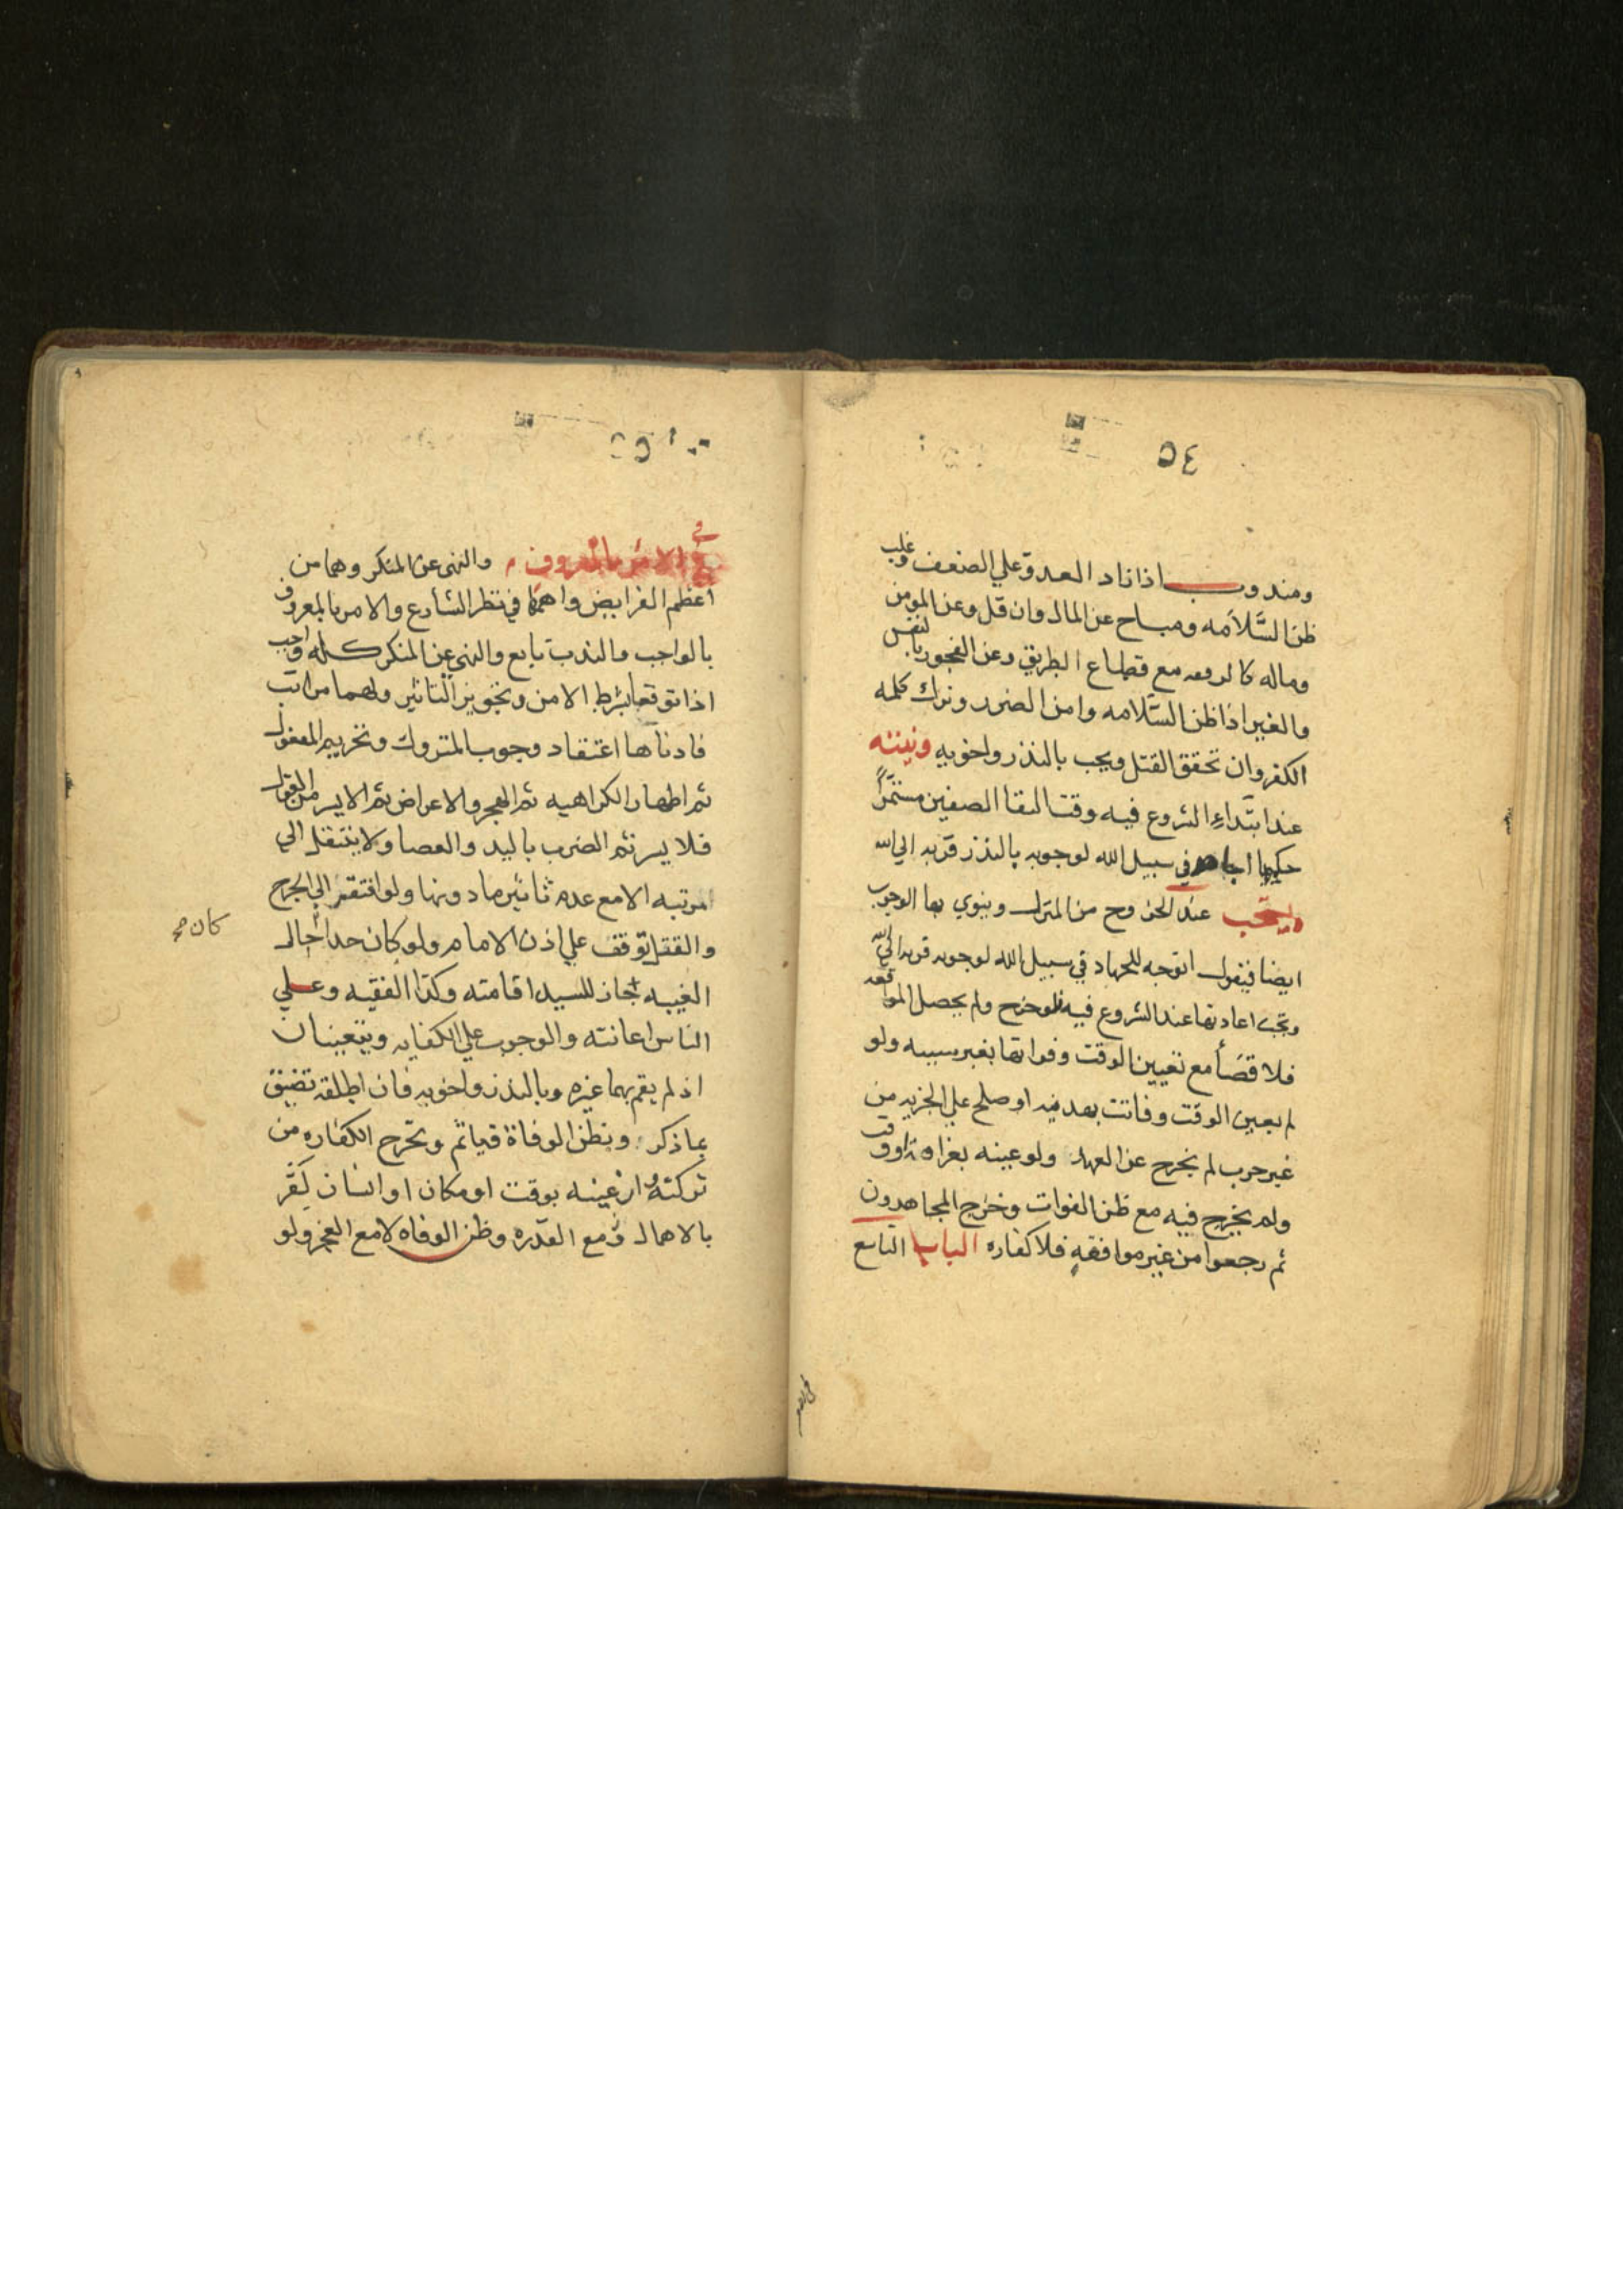 ٥٤
ومندوب اذا زاد العدو علي الضعف وغلب
ظن السَّلاَمه ومباح عن المال وان قل وعن المومن
وماله كالدفعه مع قطاع الطريق وعن الفجور بالنفس
والغير اذا ظن السَّلامه وامن الضرر وترك كلمه
الكفر وان تحقق القتل ويجب بالنذر واخويه ونيته
عند ابتداءِ الشروع فيه وقت التقا الصفين مستمراً
حكمها اجاهد في سبيل الله لوجوبه بالنذر قربه الي الله
ويستحب عند الخروج من المنزل وينوي بها الوجوب
ايضا فيقول اتوجه للجهاد في سبيل الله لوجوبه قربه الي الله
وتجب اعادتها عند الشروع فيه فلو خرج ولم يحصل المواقعه
فلا قضاً مع تعيين الوقت وفواتها بغير سببه ولو
لم يعين الوقت وفاتت بهدنه او صلح علي الجزيه من
غير حرب لم يخرج عن العهد ولو عينه بغزاة او وقت
ولم يخرج فيه مع ظن الفوات وخرج المجاهدون
ثم رجعوا من غير موافقه فلا كفاره الباب التاسع
٥٥
في الامر بالمعروف والنهي عن المنكر وهما من
اعظم الفرايض واهمها في نظر الشارع والامر بالمعروف
بالواجب والندب تابع والنهي عن المنكر كله واجب
اذا توقعا بشرط الامن وتجويز التاثير ولهما مراتب
فادناها اعتقاد وجوب المتروك وتحريم المفعول
ثم اظهار الكراهيه ثم الهجر والاعراض ثم الايسر من القول
فلايسر ثم الضرب باليد والعصا ولا ينتقل الي
المرتبه الا مع عدم تاثير ما دونها ولو افتقر الي الجرح
والقتل توقف علي اذن الامام ولو كان حدا حال
كان صح
الغيبه جاز للسيد اقامته وكذا الفقيه وعلي
الناس اعانته والوجوب علي الكفايه ويتعينان
اذ لم يقم بهما غيره وبالنذر واخويه فان اطلقه تضيق
بما ذكر وبظن الوفاة فياثم وتخرج الكفاره من
تركته وان عينه بوقت او مكان او انسان كَفَّر
بالاهمال مع القدره وظن الوفاه لا مع العجز ولو